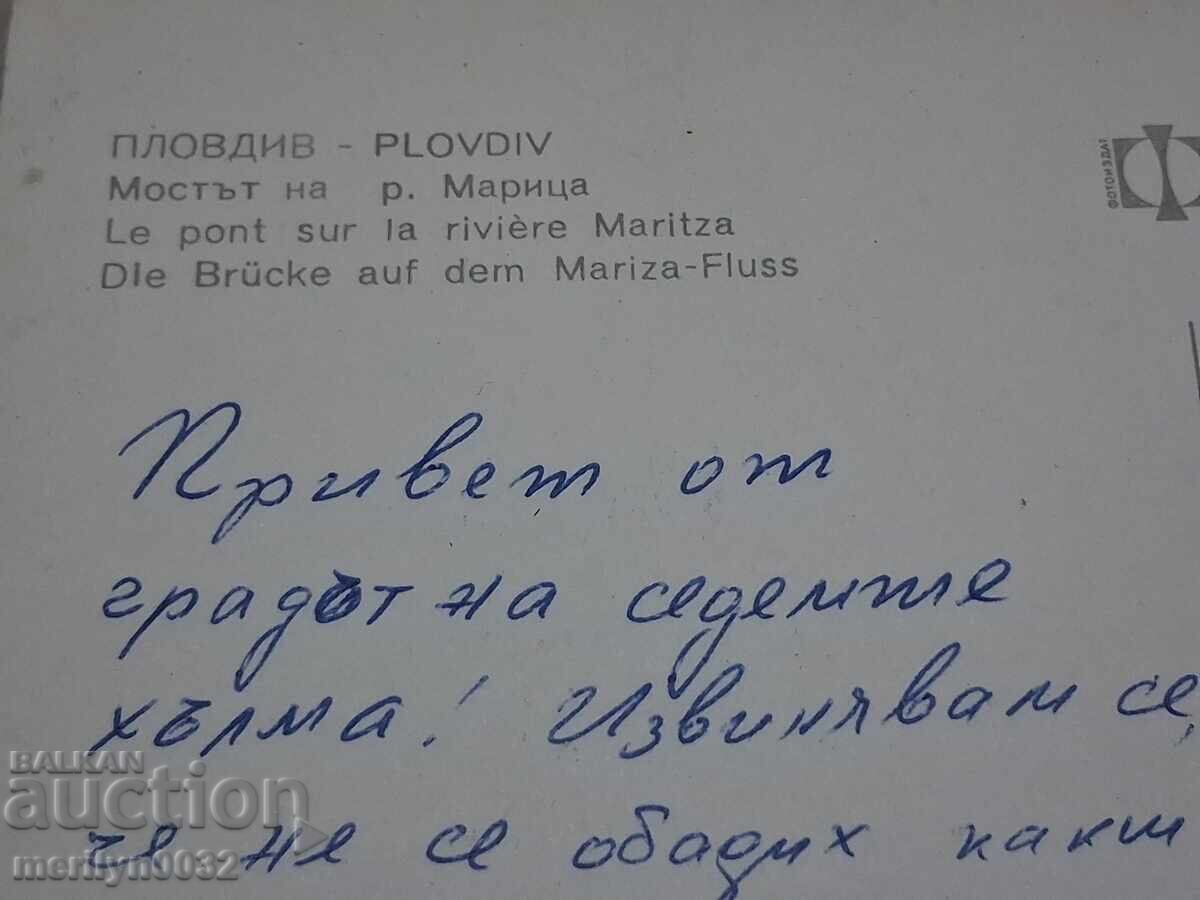 ПЛОВДИВ - PLOVDIV
Мостът на р. Марица
Le pont sur la rivière Maritza
DIe Brücke auf dem Mariza-Fluss
ФОТОИЗДАТ
Привет от
градът на седемте
хълма! Извинявам се,
че не се обадих какт
BALKAN
auction
merilyn0032